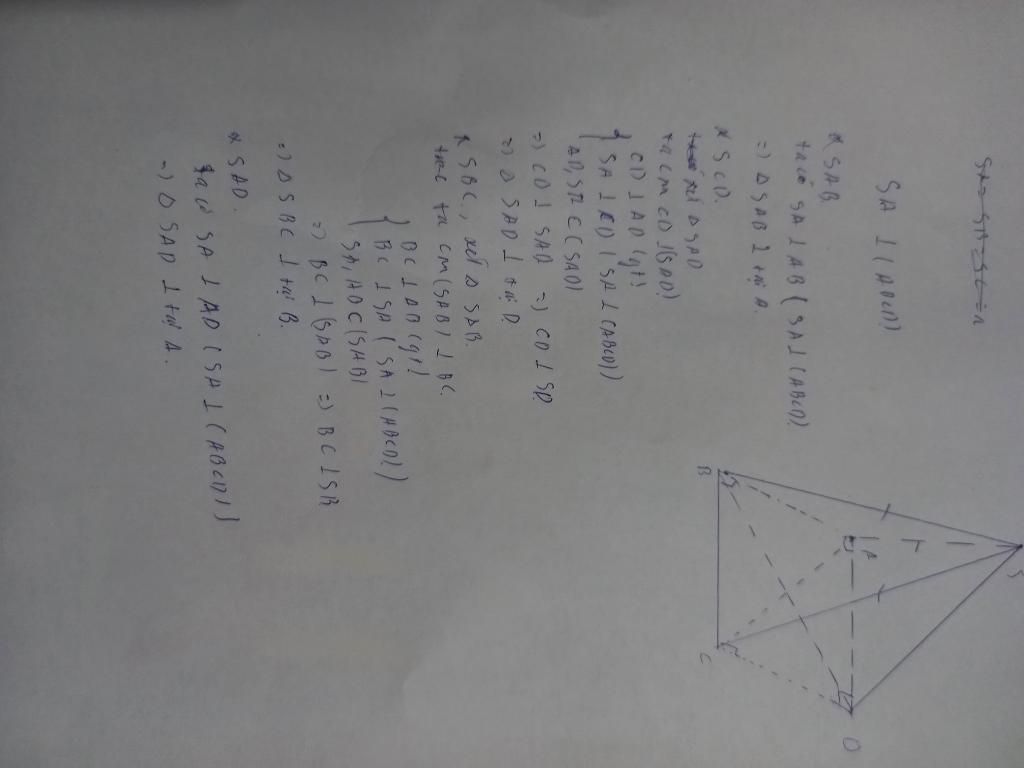 SA ⊥ (ABCD)
* SAB.
ta có SA ⊥ AB (SA ⊥ (ABCD)
=) Δ SAB ⊥ tại A.
* SCD.
xét Δ SAD
ta cm CD ⊥ (SAD)
{ CD ⊥ AD (gt)
SA ⊥ CD (SA ⊥ (ABCD))
AD, SA ⊂ (SAD)
=) CD ⊥ SAD =) CD ⊥ SD
=) Δ SAD ⊥ tại D
* SBC, xét Δ SAB.
ta cm (SAB) ⊥ BC.
{ BC ⊥ AB (gt)
BC ⊥ SA (SA ⊥ (ABCD)
SA, AD ⊂ (SAB)
=) BC ⊥ (SAB) =) BC ⊥ SB
=) Δ SBC ⊥ tại B.
* SAD.
ta có SA ⊥ AD (SA ⊥ (ABCD))
=) Δ SAD ⊥ tại A.
S
A
B
C
D